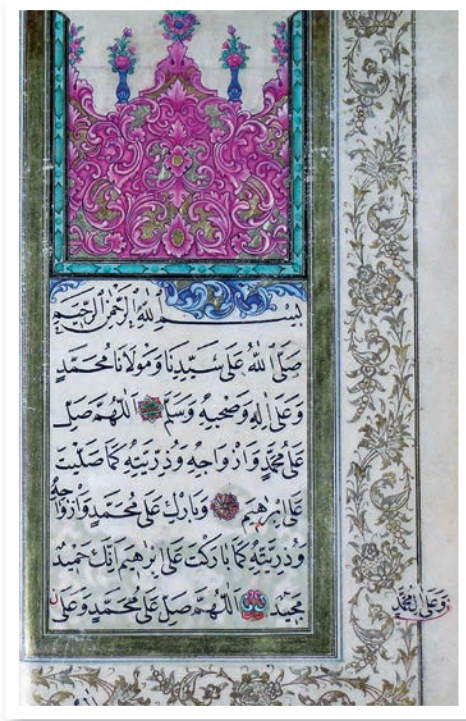 بِسْمِ اللهِ الرَّحْمٰنِ الرَّحِيمِ
صَلَّى اللهُ عَلَى سَيِّدِنَا وَمَوْلَانَا مُحَمَّدٍ
وَعَلَى اٰلِهِ وَصَحْبِهِ وَسَلَّمَ اَللّٰهُمَّ صَلِّ
عَلَى مُحَمَّدٍ وَاَزْوَاجِهِ وَذُرِّيَّتِهِ كَمَا صَلَّيْتَ
عَلَى اِبْرٰهِيمَ وَبَارِكْ عَلَى مُحَمَّدٍ وَاَزْوَاجِهِ
وَذُرِّيَّتِهِ كَمَا بَارَكْتَ عَلَى اِبْرٰهِيمَ اِنَّكَ حَمِيدٌ
مَجِيدٌ اَللّٰهُمَّ صَلِّ عَلَى مُحَمَّدٍ وَعَلَى
وَعَلَى اٰلِ مُحَمَّدٍ